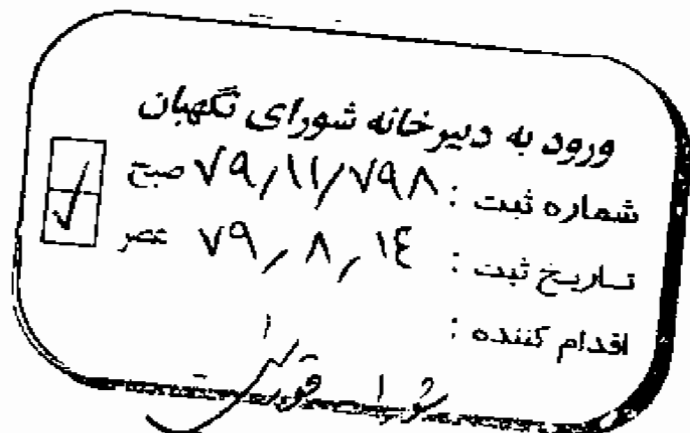 ورود به دبیرخانه شورای نگهبان
شماره ثبت : ۷۹/۱۱/۷۹۸ صبح
تاریخ ثبت : ۷۹/۸/۱۴ عصر
اقدام کننده :